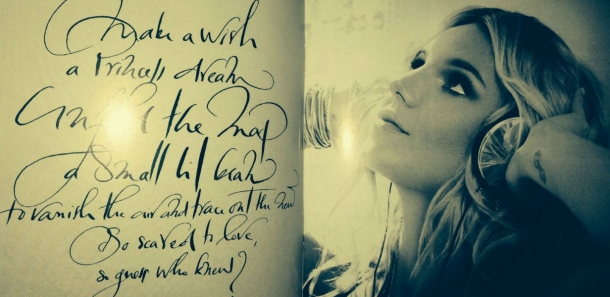 Make a wish
a Princess dream
the map
a small lil
to vanish the and trace out the New
So scared to love,
so guess who knew?